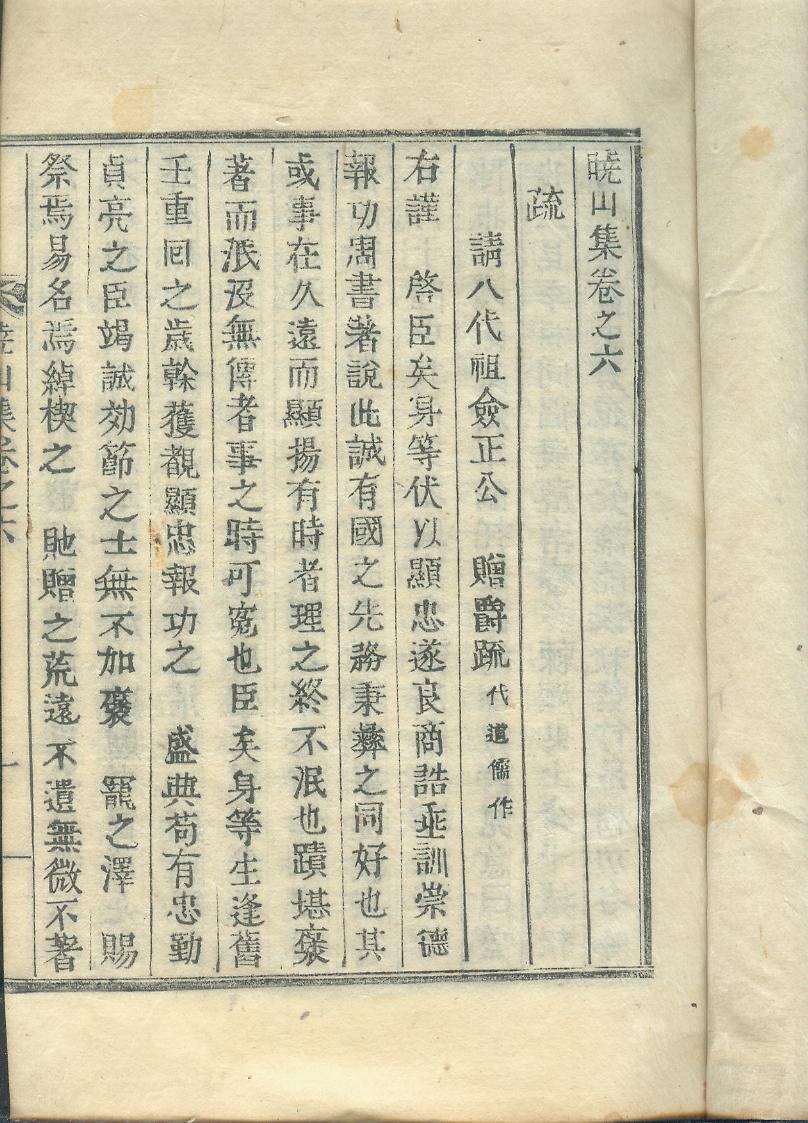 曉山集卷之六
疏
請八代祖僉正公 贈爵疏 代道儒作
右謹 啓臣矣身等伏以顯忠遂良商誥垂訓崇德
報功周書著說此誠有國之先務秉彝之同好也其
或事在久遠而顯揚有時者理之終不泯也蹟堪褒
著而泯沒無傳者事之時可寃也臣矣身等生逢舊
壬重回之歲幹獲覩顯忠報功之 盛典苟有忠勤
貞亮之臣竭誠効節之士無不加褒 寵之澤 賜
祭焉易名焉綽楔之 貤贈之荒遠不遺無微不著
曉山集卷之六 一